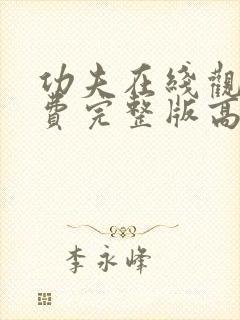 功夫在綫觀
費完整版高
李永峰